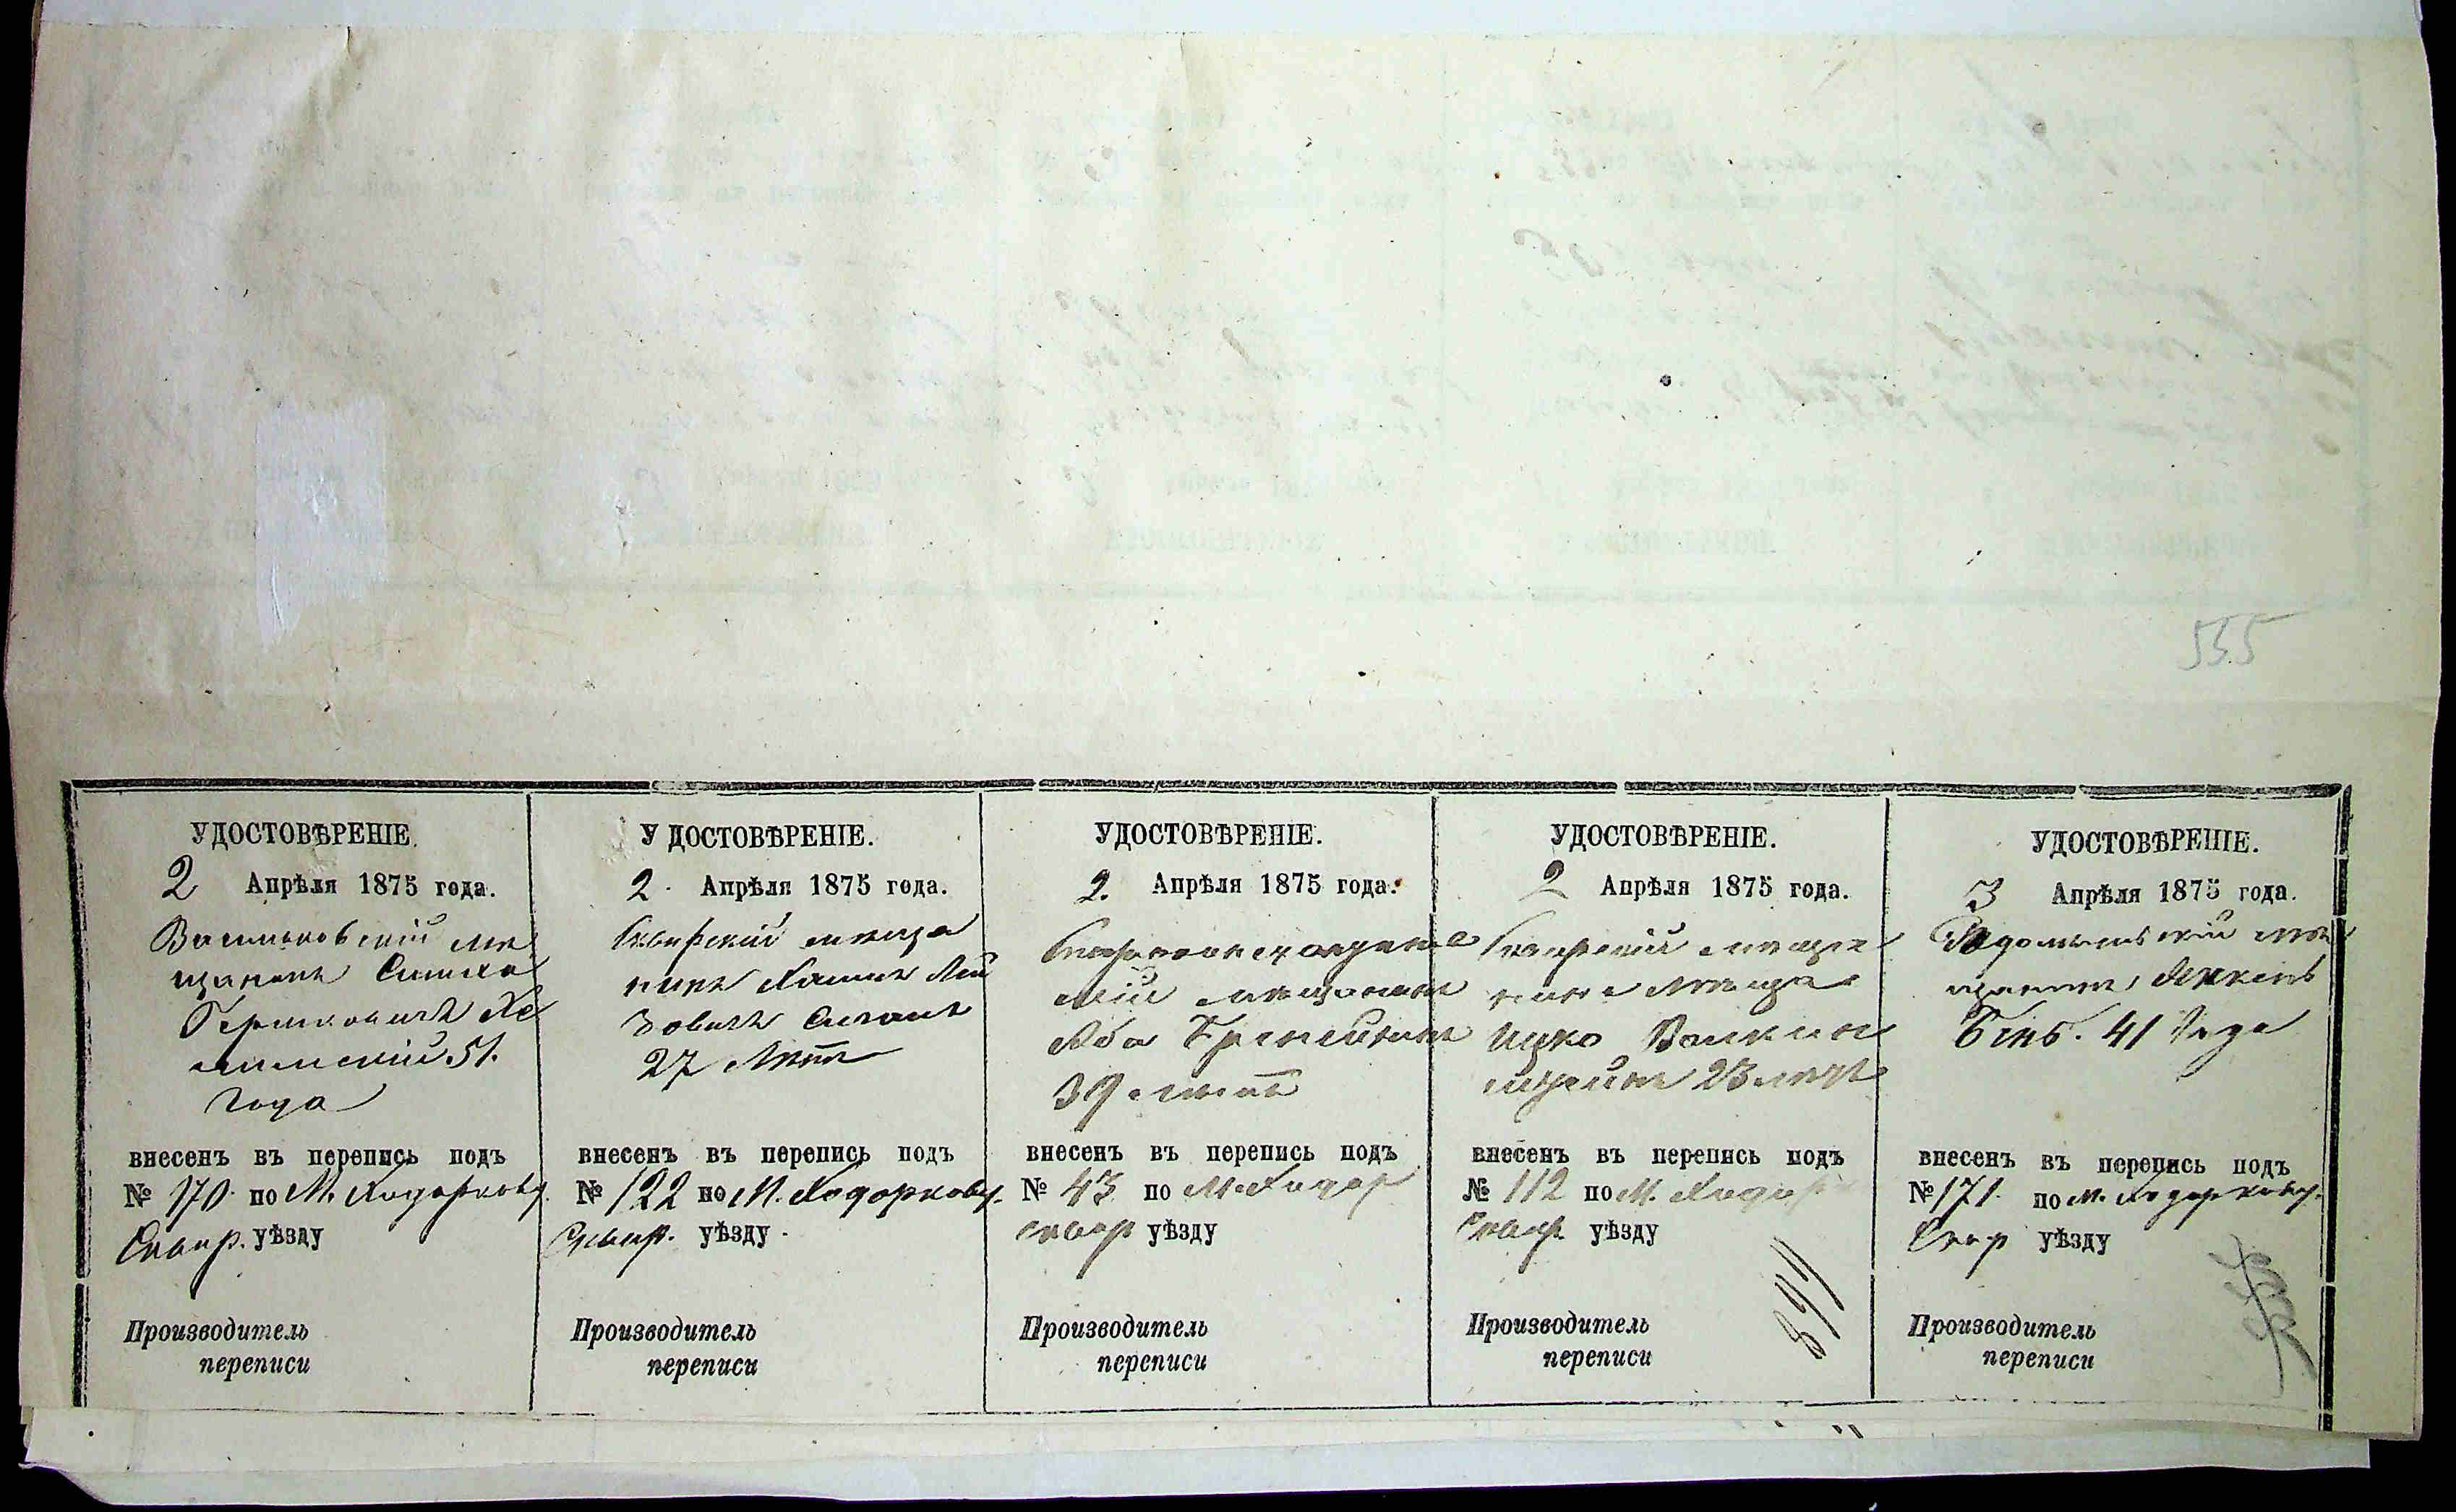 555
УДОСТОВѢРЕНІЕ.
2 Апрѣля 1875 года.
Васильковскій мѣ
щанинъ Симха
Гершковичъ Хе
51.
года
внесенъ въ перепись подъ
№ 170 по М. Ходоркову
Сквир. уѣзду
Производитель
переписи
УДОСТОВѢРЕНІЕ.
2 Апрѣля 1875 года.
Сквирскій мѣща
нинъ Хаимъ Лей
зовичъ
27 лѣтъ
внесенъ въ перепись подъ
№ 122 по М. Ходоркову.
Сквир. уѣзду
Производитель
переписи
УДОСТОВѢРЕНІЕ.
2. Апрѣля 1875 года.
скій мѣщанинъ
Аба
39 лѣтъ
внесенъ въ перепись подъ
№ 43 по М. Ходор
Сквир уѣзду
Производитель
переписи
УДОСТОВѢРЕНІЕ.
2 Апрѣля 1875 года.
Сквирскій мѣща
нинъ
Ицко
23 лѣтъ
внесенъ въ перепись подъ
№ 112 по М. Ходорк
Сквир. уѣзду
Производитель
переписи
УДОСТОВѢРЕНІЕ.
3 Апрѣля 1875 года.
Радомысльскій мѣ
щанинъ Янкель
41 года
внесенъ въ перепись подъ
№ 171. по м. Ходоркову.
Сквр уѣзду
Производитель
переписи